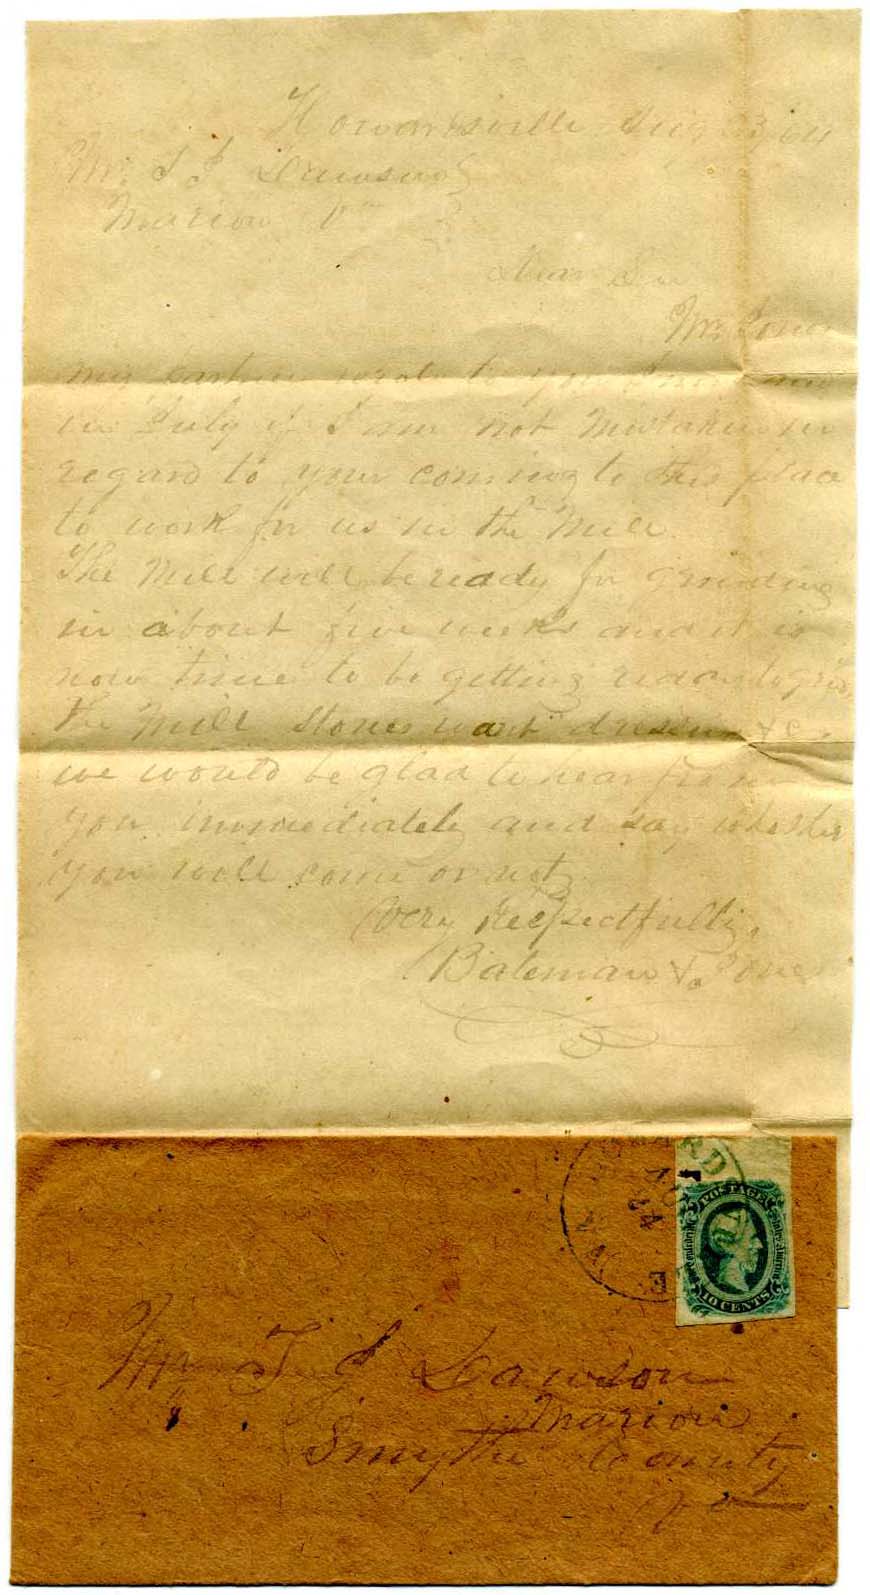 Howardsville Aug 23, 64
Mr. T J Dawson
Marion Va
Dear Sir
Mr. Jones
my partner wrote to you
in July if I am not mistaken in
regard to your coming to this place
to work for us in the Mill.
The Mill will be ready for grinding
in about five weeks and it is
now time to be getting ready to grind,
the Mill Stones want dressing &c.
we would be glad to hear from
you immediately and say whether
you will come or not
Very Respectfully,
Bateman & Jones
HOWARDSVILLE VA
AUG 24
POSTAGE
The Confederate States of America
10 CENTS
Mr T J Dawson
Marion
Smythe County
Va